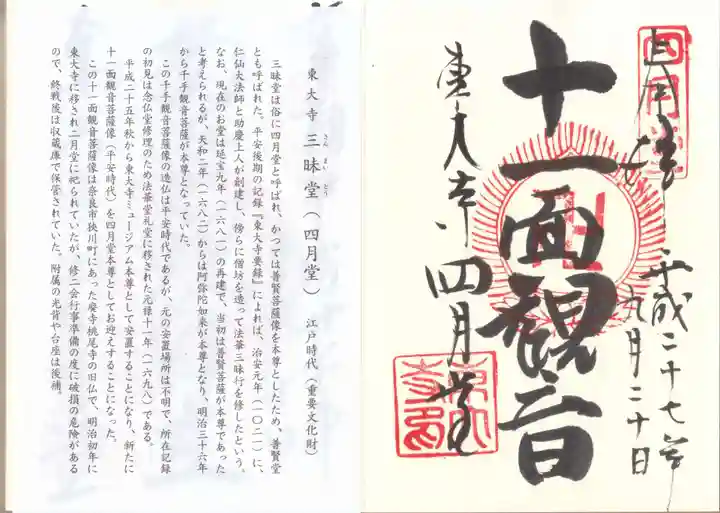 四月堂
奉拝 平成二十七年
九月二十日
十一面観音
東大寺 四月堂
東大寺 三昧堂（四月堂） 江戸時代（重要文化財）
さん まい どう
三昧堂は俗に四月堂と呼ばれ、かつては普賢菩薩像を本尊としたため、普賢堂
とも呼ばれた。平安後期の記録『東大寺要録』によれば、治安元年（一〇二一）に、
仁仙大法師と助慶上人が創建し、傍らに僧坊を造って法華三昧行を修したという。
なお、現在のお堂は延宝九年（一六八一）の再建で、当初は普賢菩薩が本尊であった
と考えられるが、天和二年（一六八二）からは阿弥陀如来が本尊となり、明治三十六年
から千手観音菩薩が本尊となっていた。
この千手観音菩薩像の造仏は平安時代であるが、元の安置場所は不明で、所在記録
の初見は念仏堂修理のため法華堂礼堂に移された元禄十一年（一六九八）である。
平成二十五年秋から東大寺ミュージアム本尊として安置することになり、新たに
十一面観音菩薩像（平安時代）を四月堂本尊としてお迎えすることになった。
この十一面観音菩薩像は奈良市狭川町にあった廃寺桃尾寺の旧仏で、明治初年に
東大寺に移され二月堂に祀られていたが、修二会行事準備の度に破損の危険がある
ので、終戦後は収蔵庫で保管されていた。附属の光背や台座は後補。